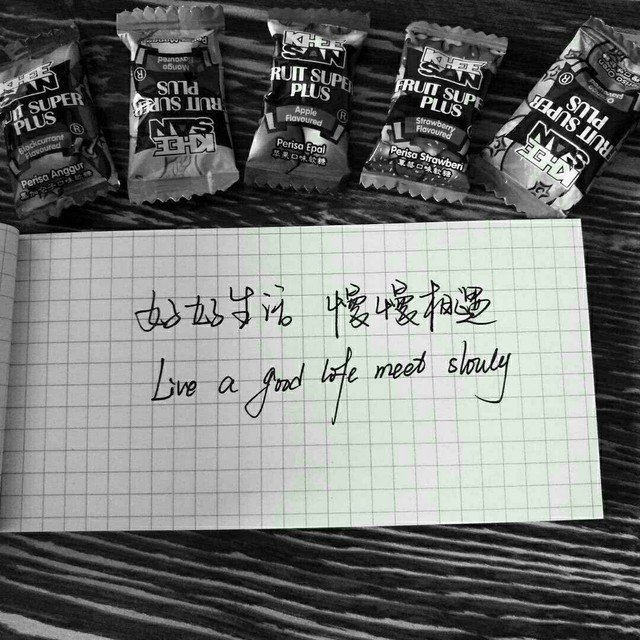 KHEE SAN
FRUIT SUPER PLUS
Blackcurrant Flavoured
Perisa Anggur
Mango Flavoured
FRUIT SUPER PLUS
KHEE SAN
KHEE SAN
FRUIT SUPER PLUS
Apple Flavoured
Perisa Epal
苹果口味軟糖
KHEE SAN
FRUIT SUPER PLUS
Strawberry Flavoured
Perisa Strawberi
草莓口味軟糖
FRUIT SUPER PLUS
KHEE SAN
好好生活 慢慢相遇
Live a good life meet slowly